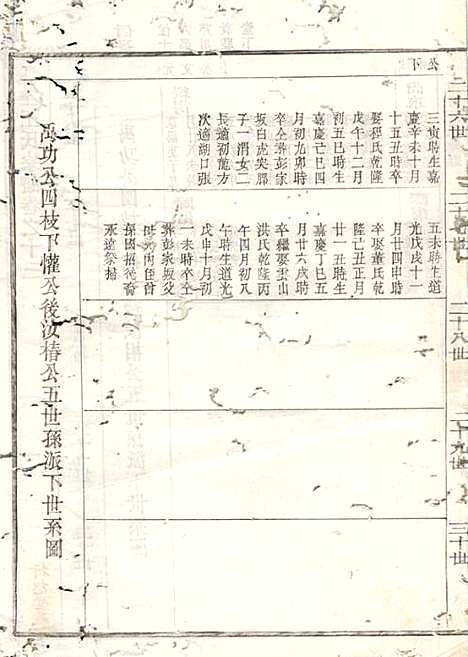 二十六世
二十七世
二十八世
二十九世
三十世
三寅時生嘉
慶辛未十月
十五丑時卒
娶程氏乾隆
戊午十二月
初五巳時生
嘉慶己巳四
月初九卯時
卒仝葬彭家
坂白虎尖腳
子一渭女二
長適初龍方
次適湖口張
五未時生道
光戊戌十一
月廿四申時
卒娶董氏乾
隆己丑正月
廿一丑時生
嘉慶丁巳五
月廿六寅時
卒繼娶雲山
洪氏乾隆丙
午四月初八
午時生道光
戊申十月初
一未時卒仝
葬彭家坂父
內侄曾
孫國招徒裔
永遠祭掃
禹功公四枝下懽公後汝椿公五世孫派下世系圖